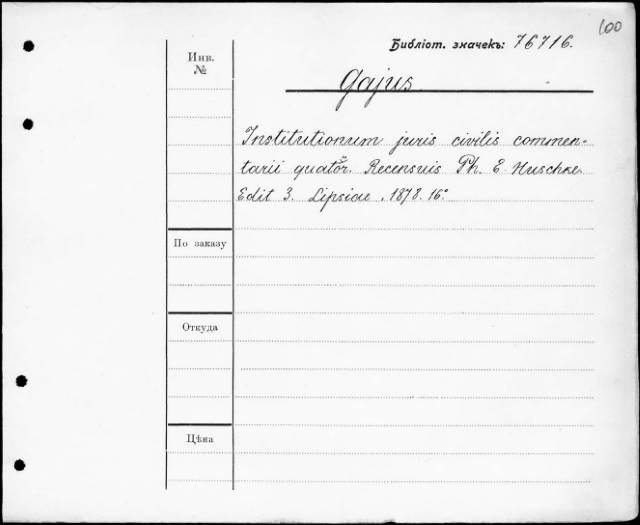 100
Библіот. значекъ: 76716.
Инв.
№
Gajus
Institutionum juris civilis commen-
tarii quatŏr. Recensuis Ph. E. Huschke
Edit 3. Lipsiae. 1878. 16°
По заказу
Откуда
Цѣна